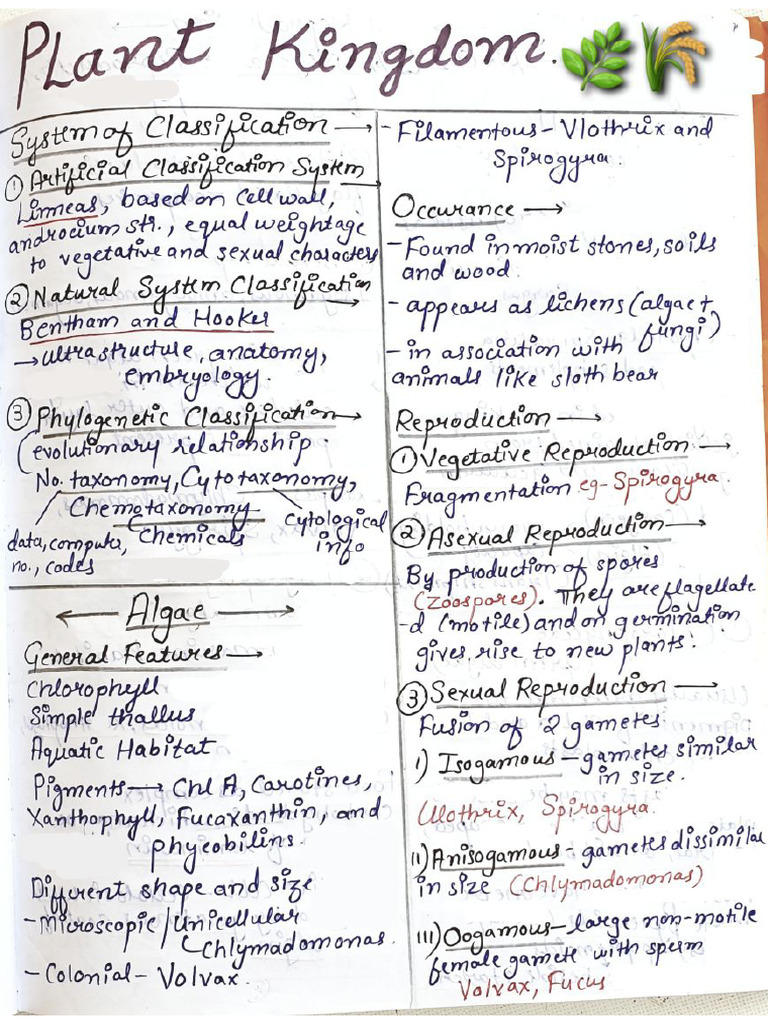 Plant Kingdom.
System of Classification →
① Artificial Classification System →
Linneas, based on Cell wall,
androcium str., equal weightage
to vegetative and sexual characters
② Natural System Classification →
Bentham and Hooker
→ ultrastructure, anatomy,
embryology.
③ Phylogenetic Classification →
(evolutionary relationship
No. taxonomy, Cytotaxonomy,
Chemotaxonomy
Chemicals
cytological
info
data, computer,
no., codes
← Algae →
General Features →
Chlorophyll
Simple thallus
Aquatic Habitat
Pigments → Chl A, Carotines,
Xanthophyll, Fucaxanthin, and
phycobilins.
Different shape and size
- Microscopic / Unicellular
Chlymadomonas.
- Colonial - Volvax.
- Filamentous - Vlothrix and
Spirogyra.
Occurance →
- Found in moist stones, soils
and wood.
- appears as lichens (algae +
fungi)
- in association with
animals like sloth bear
Reproduction →
① Vegetative Reproduction →
Fragmentation eg - Spirogyra.
② Asexual Reproduction →
By production of spores
(Zoospores). They are flagellate
-d (motile) and on germination
gives rise to new plants.
③ Sexual Reproduction →
Fusion of 2 gametes
I) Isogamous - gametes similar
in size.
Ulothrix, Spirogyra.
II) Anisogamous - gametes dissimilar
in size (Chlymadomonas)
III) Oogamous - large non-motile
female gamete with sperm
Volvax, Fucus